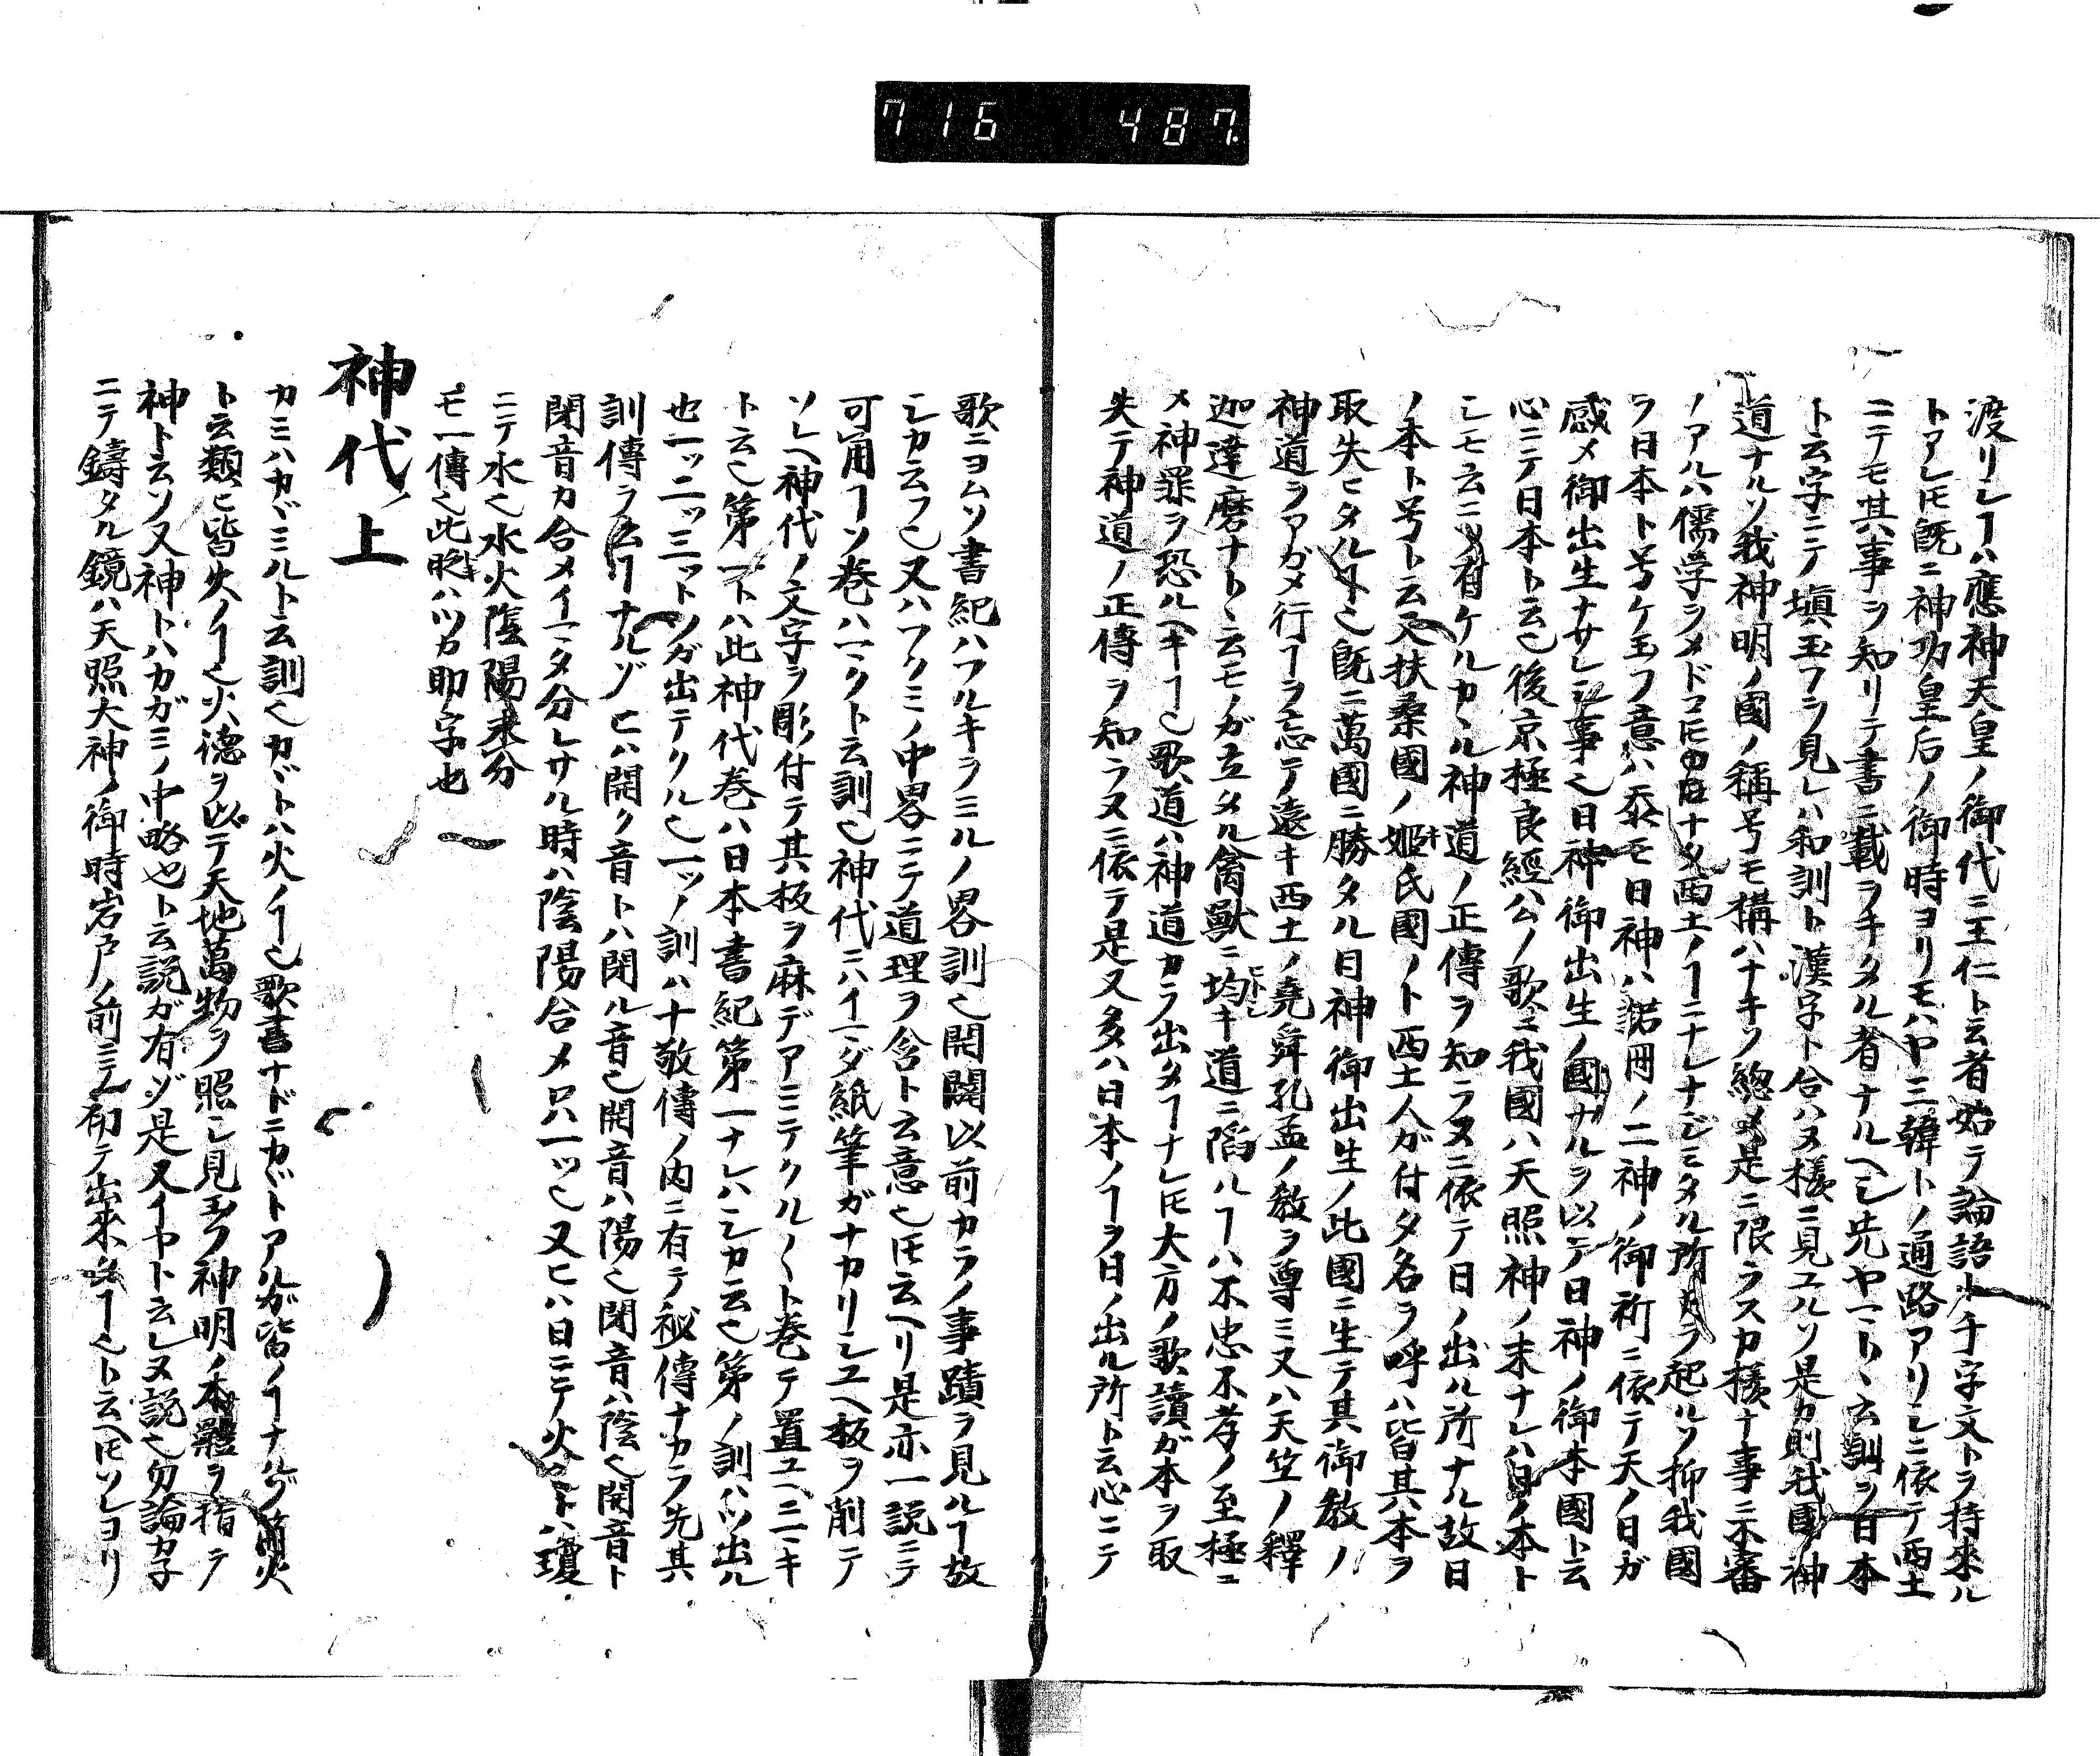 716 487
渡リシヿハ應神天皇ノ御代ニ王仁ト云者始テ論語ト千字文トヲ持來ル
トアレ𪜈既ニ神功皇后ノ御時ヨリモハヤ三韓トノ通路アリシニ依テ西土
ニテモ其事ヲ知リテ書ニ載ヲキタル者ナルヘシ先ヤマトヽ云訓ヲ日本
ト云字ニテ塡玉フヲ見レハ和訓ト漢字ト合ハヌ樣ニ見ユルソ是カ則我國ノ神
道ナルソ我神明ノ國ノ稱号モ構ハナキソ總メ是ニ限ラスカ樣ナ事ニ不審
ノアルハ儒学ヲメドコ𪜈ナタ西土ノヿニナレナジミタル所カラ起ルソ抑我國
ヲ日本ト号ケ玉フ意ハ忝モ日神ハ諾冊ノ二神ノ御祈ニ依テ天ノ日ガ
感メ御出生ナサレシ事也日神御出生ノ國ナルヲ以テ日神ノ御本國ト云
心ニテ日本ト云也後京極良經公ノ歌ニ我國ハ天照神ノ末ナレハ日ノ本ト
シモ云ニソ有ケルカヽル神道ノ正傳ヲ知ラヌニ依テ日ノ出ル所ナル故日
ノ本ト号ト云又扶桑國ノ姬氏國ノト西土人ガ付タ名ヲ呼ハ皆其本ヲ
取失ヒタルヿ也既ニ萬國ニ勝タル日神御出生ノ此國ニ生テ其御教ノ
神道ヲアガメ行ヿヲ忘テ遠キ西土ノ堯舜孔孟ノ教ヲ尊ミ又ハ天竺ノ釋
迦達磨ナトヽ云モノガ立タル禽獸ニ均キ道ニ陷ルヿハ不忠不孝ノ至極ニ
メ神罪ヲ恐ルヘキヿ也歌道ハ神道カラ出タヿナレ𪜈大方ノ歌讀ガ本ヲ取
失テ神道ノ正傳ヲ知ラヌニ依テ是又多ハ日本ノヿヲ日ノ出ル所ト云心ニテ
歌ニヨムソ書紀ハフルキヲミルノ畧訓也開闢以前カラノ事蹟ヲ見ルヿ故
シカ云フ也又ハフクミノ中畧ニテ道理ヲ含ト云意也𪜈云ヘリ是亦一説ニテ
可用ヿソ巻ハマクト云訓也神代ニハイマダ紙筆ガナカリシユヘ板ヲ削テ
ソレヘ神代ノ文字ヲ彫付テ其板ヲ麻デアミテクル〱ト巻テ置ユヘニマキ
ト云也第一トハ此神代巻ハ日本書紀第一ナレハシカ云也第ノ訓ハツ出ル
也一ッ二ッ三ットノガ出テクル也一ッノ訓ハ十敬傳ノ内ニ有テ秘傳ナカラ先其
訓傳ヲ云ワナルゾヒハ開ク音トハ閉ル音也開音ハ陽也閉音ハ陰也開音ト
閉音カ合メイマタ分レサル時ハ陰陽合メ只一ッ也又ヒハ日ニテ火也トハ瓊
ニテ水也水火陰陽未分
モ一傳也此䀮ハツカ助字也
神代ノ上
カミハカヾミルト云訓也カヾトハ火ノヿ也歌書ナドニカヾトアルガ皆ノヿナルゾ篝火
ト云類ヒ皆火ノヿ也火德ヲ以テ天地萬物ヲ照シ見玉フ神明ノ本體ヲ指テ
神ト云ソ又神トハカガミノ中略也ト云説ガ有ゾ是又イヤト云レヌ説也勿論カヾ
ニテ鑄タル鏡ハ天照大神ノ御時岩戸ノ前ニテ初テ出來タヿ也ト云ヘ𪜈ソレヨリ